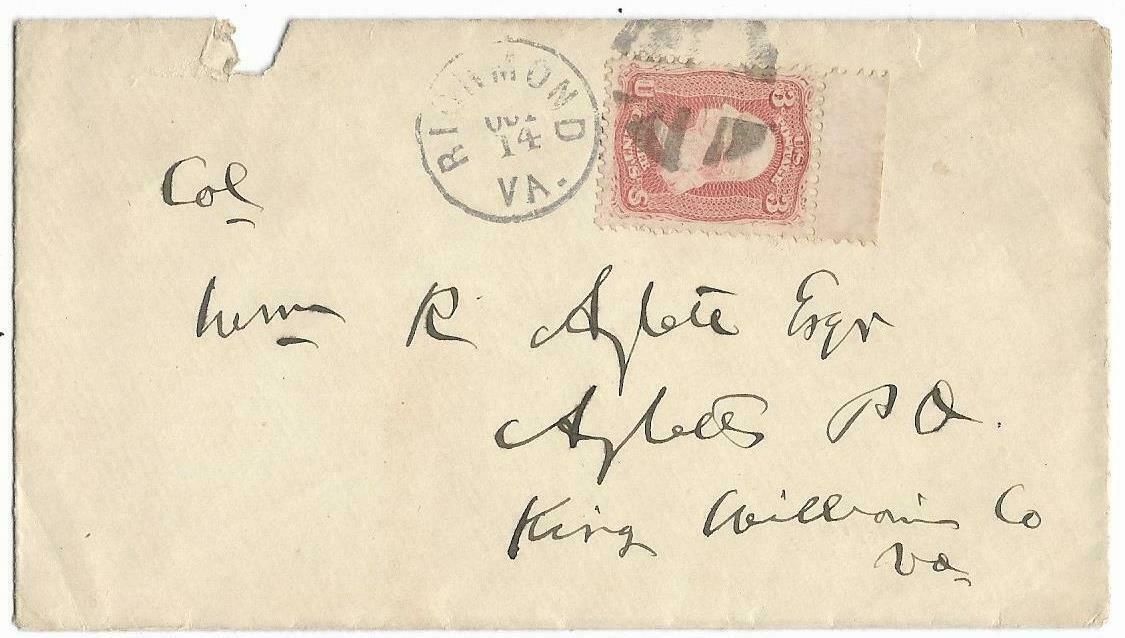 RICHMOND
OCT
14
VA.
3 U.S. POSTAGE 3
Col
Wm R Aylett Esqr
Ayletts P O.
King William Co
Va